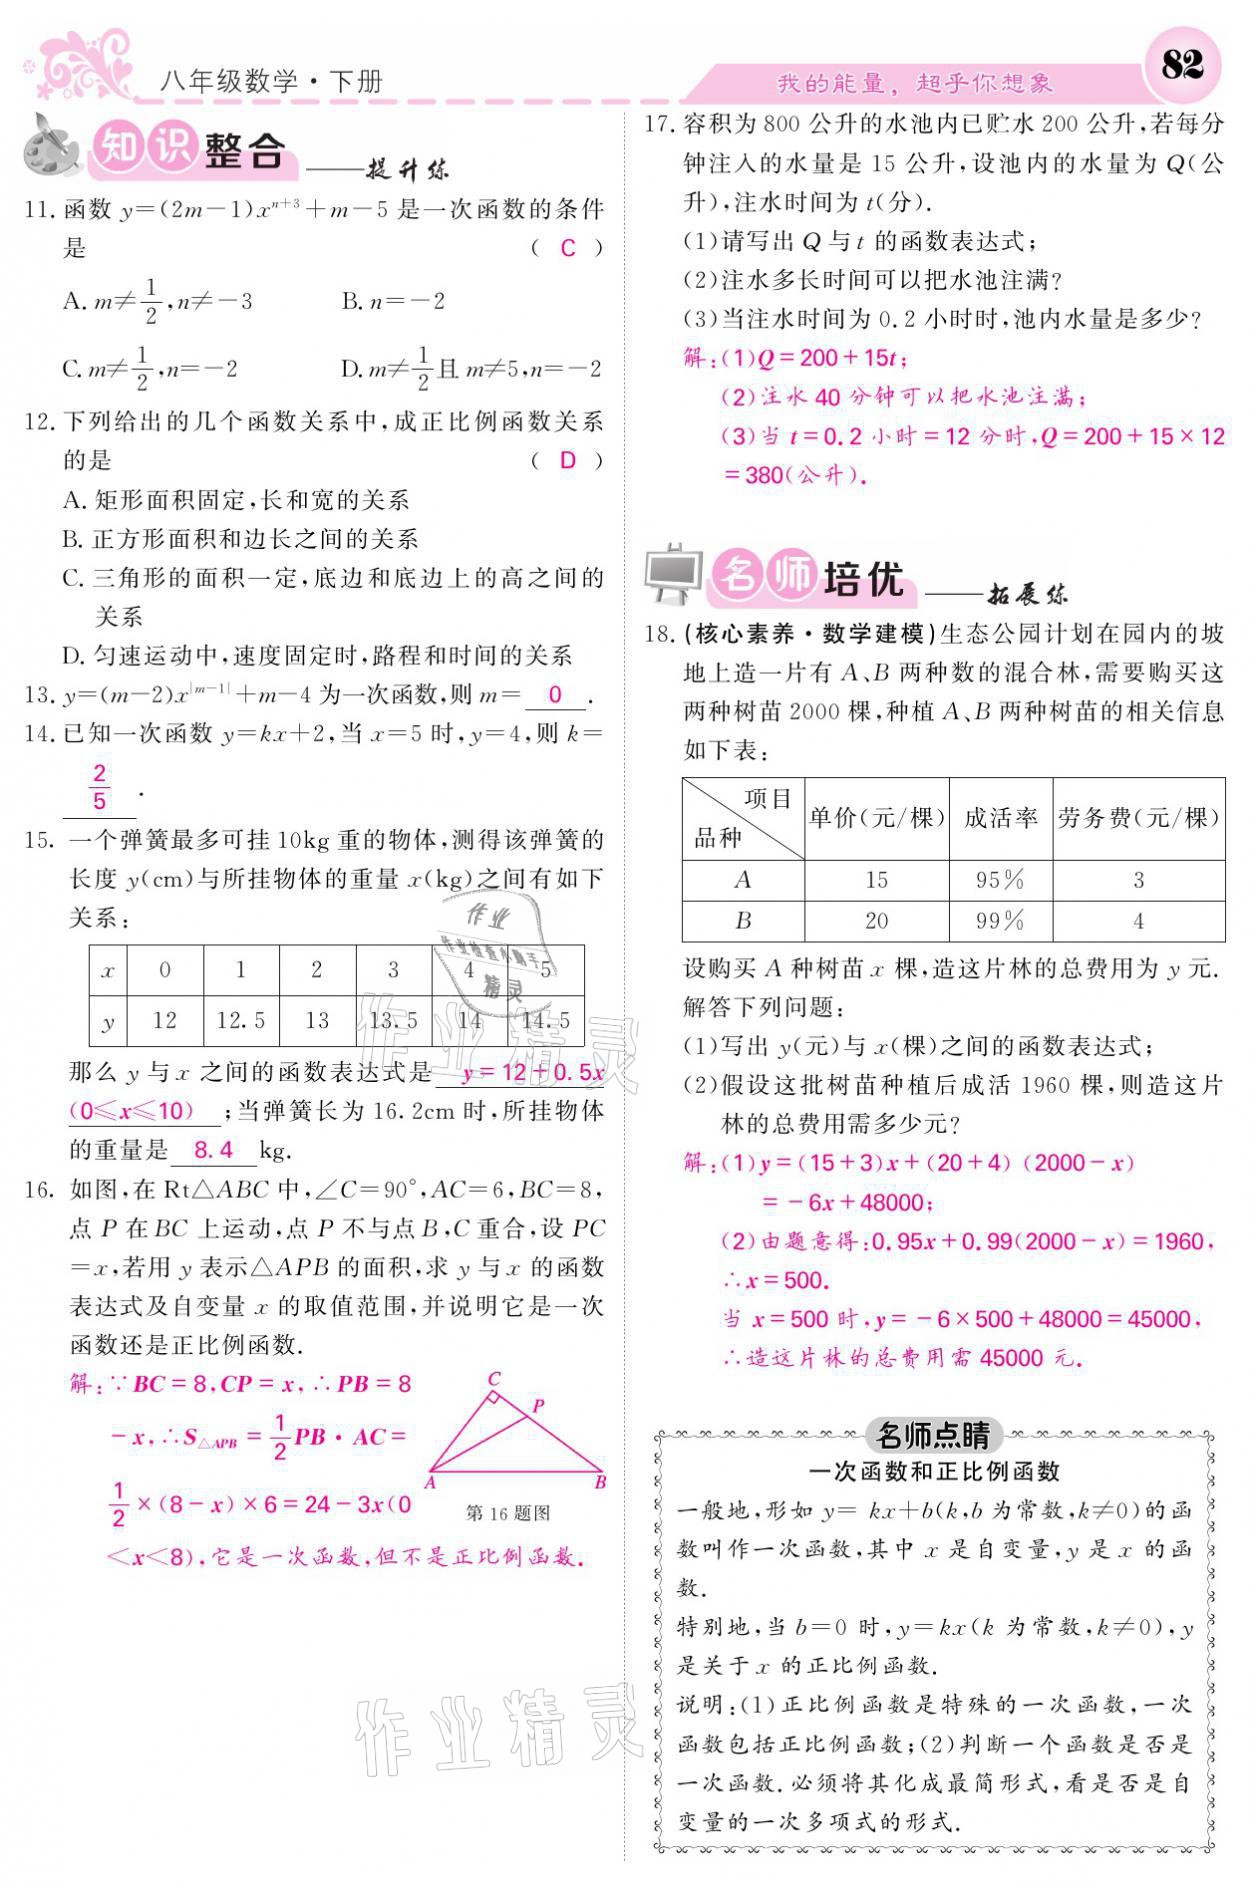 八年级数学·下册
我的能量，超乎你想象
82
知识整合——提升练
11. 函数 y=(2m-1)xⁿ⁺³+m-5 是一次函数的条件
是 ( C )
A. m≠1/2,n≠-3 B. n=-2
C. m≠1/2,n=-2 D. m≠1/2且 m≠5,n=-2
12. 下列给出的几个函数关系中,成正比例函数关系
的是 ( D )
A. 矩形面积固定,长和宽的关系
B. 正方形面积和边长之间的关系
C. 三角形的面积一定,底边和底边上的高之间的
关系
D. 匀速运动中,速度固定时,路程和时间的关系
13. y=(m-2)x^|m-1|+m-4 为一次函数,则 m= 0 .
14. 已知一次函数 y=kx+2,当 x=5 时,y=4,则 k=
2/5 .
15. 一个弹簧最多可挂 10kg 重的物体,测得该弹簧的
长度 y(cm)与所挂物体的重量 x(kg)之间有如下
关系:
x 0 1 2 3 4 5
y 12 12.5 13 13.5 14 14.5
那么 y 与 x 之间的函数表达式是 y=12+0.5x
(0≤x≤10) ;当弹簧长为 16.2cm 时,所挂物体
的重量是 8.4 kg.
16. 如图,在 Rt△ABC 中,∠C=90°,AC=6,BC=8,
点 P 在 BC 上运动,点 P 不与点 B,C 重合,设 PC
=x,若用 y 表示△APB 的面积,求 y 与 x 的函数
表达式及自变量 x 的取值范围,并说明它是一次
函数还是正比例函数.
解:∵BC=8,CP=x,∴PB=8
-x,∴S△APB=1/2PB·AC=
1/2×(8-x)×6=24-3x(0
<x<8),它是一次函数,但不是正比例函数.
C
P
A
B
第 16 题图
17. 容积为 800 公升的水池内已贮水 200 公升,若每分
钟注入的水量是 15 公升,设池内的水量为 Q(公
升),注水时间为 t(分).
(1)请写出 Q 与 t 的函数表达式;
(2)注水多长时间可以把水池注满?
(3)当注水时间为 0.2 小时时,池内水量是多少?
解:(1)Q=200+15t;
(2)注水 40 分钟可以把水池注满;
(3)当 t=0.2 小时=12 分时,Q=200+15×12
=380(公升).
名师培优——拓展练
18. (核心素养·数学建模)生态公园计划在园内的坡
地上造一片有 A、B 两种数的混合林,需要购买这
两种树苗 2000 棵,种植 A、B 两种树苗的相关信息
如下表:
项目
品种 单价(元/棵) 成活率 劳务费(元/棵)
A 15 95% 3
B 20 99% 4
设购买 A 种树苗 x 棵,造这片林的总费用为 y 元.
解答下列问题:
(1)写出 y(元)与 x(棵)之间的函数表达式;
(2)假设这批树苗种植后成活 1960 棵,则造这片
林的总费用需多少元?
解:(1)y=(15+3)x+(20+4)(2000-x)
=-6x+48000;
(2)由题意得:0.95x+0.99(2000-x)=1960,
∴x=500.
当 x=500 时,y=-6×500+48000=45000,
∴造这片林的总费用需 45000 元.
名师点睛
一次函数和正比例函数
一般地,形如 y= kx+b(k,b 为常数,k≠0)的函
数叫作一次函数,其中 x 是自变量,y 是 x 的函
数.
特别地,当 b=0 时,y=kx(k 为常数,k≠0),y
是关于 x 的正比例函数.
说明:(1)正比例函数是特殊的一次函数,一次
函数包括正比例函数;(2)判断一个函数是否是
一次函数.必须将其化成最简形式,看是否是自
变量的一次多项式的形式.
作业
作业检查小助手
精灵
作业精灵
作业精灵